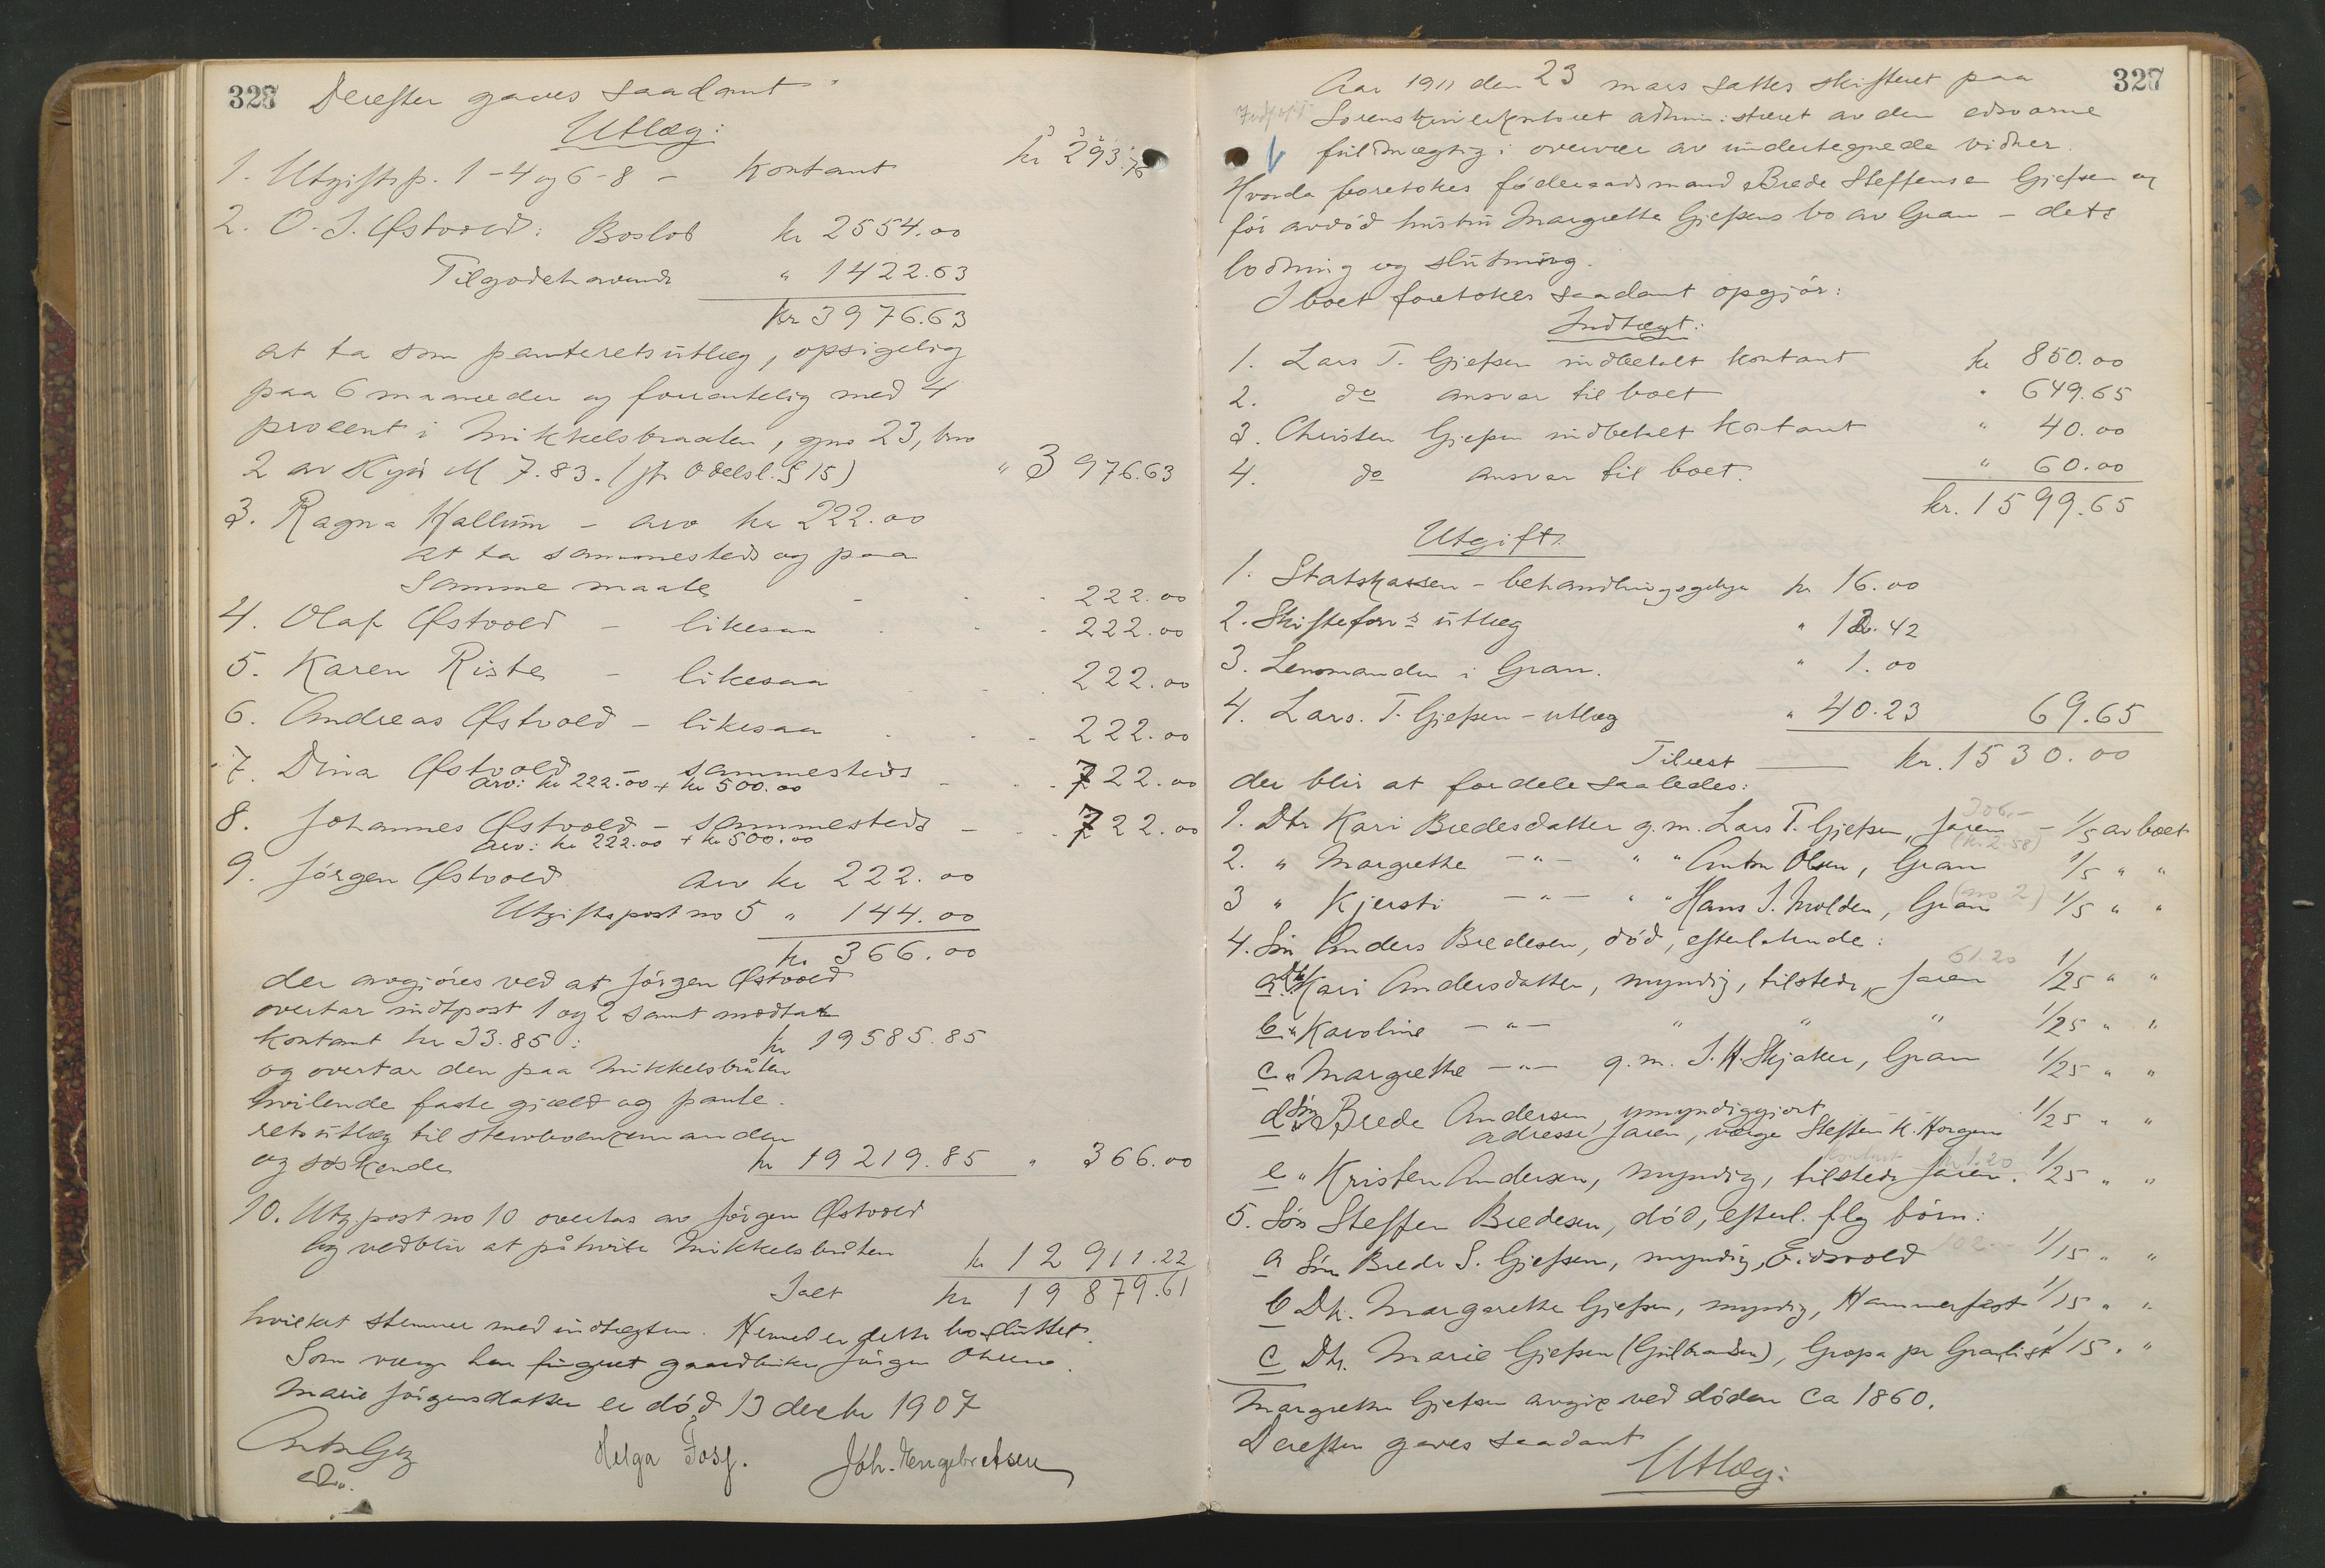 328
Derefter gaves saadant
Utlæg:
1. Utgiftsp. 1-4 og 6-8 - Kontant kr 293.76
2. O. J. Østvold: Boslod kr 2554.00
Tilgodehavende " 1422.63
kr 3976.63
at ta som panteretsutlæg, opsigelig
paa 6 maaneder og forrentelig med 4
procent i Mikkelsbraaten, gno 23, bno
2 av Skyld M 7.83. (jfr Odelsl. § 15) " 3 976.63
3. Ragna Hallum - arv kr 222.00
at ta sammesteds og paa
samme maate - - - 222.00
4. Olaf Østvold - likesaa - - 222.00
5. Karen Riste - likesaa - - 222.00
6. Andreas Østvold - likesaa - - - 222.00
7. Dina Østvold - sammesteds - - 722.00
arv: kr 222.00 + kr 500.00
8. Johannes Østvold - sammesteds - - 722.00
arv: kr 222.00 + kr 500.00
9. Jørgen Østvold arv kr 222.00
Utgiftspost no 5 " 144.00
kr 366.00
der avgjøres ved at Jørgen Østvold
overtar indtpost 1 og 2 samt modtar
kontant kr 33.85: kr 19585.85
og overtar den paa Mikkelsbråten
hvilende faste gjæld og pante-
retsutlæg til stervboenkemanden
og søskende kr 19219.85 " 366.00
10. Utg post no 10 overtas av Jørgen Østvold
og vedblir at påhvile Mikkelsbråten kr 12 911.22
Ialt kr 19 879.61
hvilket stemmer med indtægten. Hermed er dette bo sluttet.
Som værge har fungert gaardbruker Jørgen
Marie Jørgensdatter er død 13 decbr 1907
Helga Fosz. Joh. Engebretsen
327
Aar 1911 den 23 mars sattes skifteret paa
Sorenskriverkontoret administreret av den edsvorne
fuldmægtig i overvær av undertegnede vidner.
Hvorda foretokes føderaadsmand Brede Steffensen Gjefsen og
før avdød hustru Margrethe Gjefsens bo av Gran - dets
lodning og slutning.
I boet foretokes saadant opgjør:
Indtægt:
1. Lars T. Gjefsen indbetalt kontant kr 850.00
2. do ansvar til boet " 649.65
3. Christen Gjefsen indbetalt kontant " 40.00
4. do ansvar til boet. " 60.00
kr. 1599.65
Utgift:
1. Statskassen - behandlingsgebyr kr 16.00
2. Skifteforvs utlæg " 12.42
3. Lensmanden i Gran. " 1.00
4. Lars. T. Gjefsen - utlæg " 40.23 69.65
Tilrest kr. 1530.00
der blir at fordele saaledes:
306.-
1. Dtr Kari Bredesdatter g.m. Lars T. Gjefsen, Jaren - 1/5 av boet
2. " Margrethe - " - " " Anton Olsen, Gran 1/5 " "
3 " Kjersti - " - " " Hans J. Molden, Gran 1/5 " "
4. Søn Anders Bredesen, død, efterlatende:
61.20
a Dtr Kari Andersdatter, myndig, tilstede, Jaren 1/25 " "
b " Karoline - " - " " " 1/25 " "
c " Margrethe - " - g.m. J. H. Skjaker, Gran 1/25 " "
d Søn Brede Andersen, umyndiggjort 1/25 " "
adresse Jaren, værge Steffen K. Horgen
e " Kristen Andersen, myndig, tilstede Jaren. 1/25 " "
5. Søn Steffen Bredesen, død, efterl. flg børn:
102.-
a Søn Brede S. Gjefsen, myndig, Eidsvold 1/15 " "
b Dtr. Margarethe Gjefsen, myndig, Hammerfest 1/15 " "
c Dtr. Marie Gjefsen (Gulbrandsen), Gropa pr Granli st 1/15 " "
Margrethe Gjefsen avgik ved døden ca 1860.
Derefter gaves saadant
Utlæg: